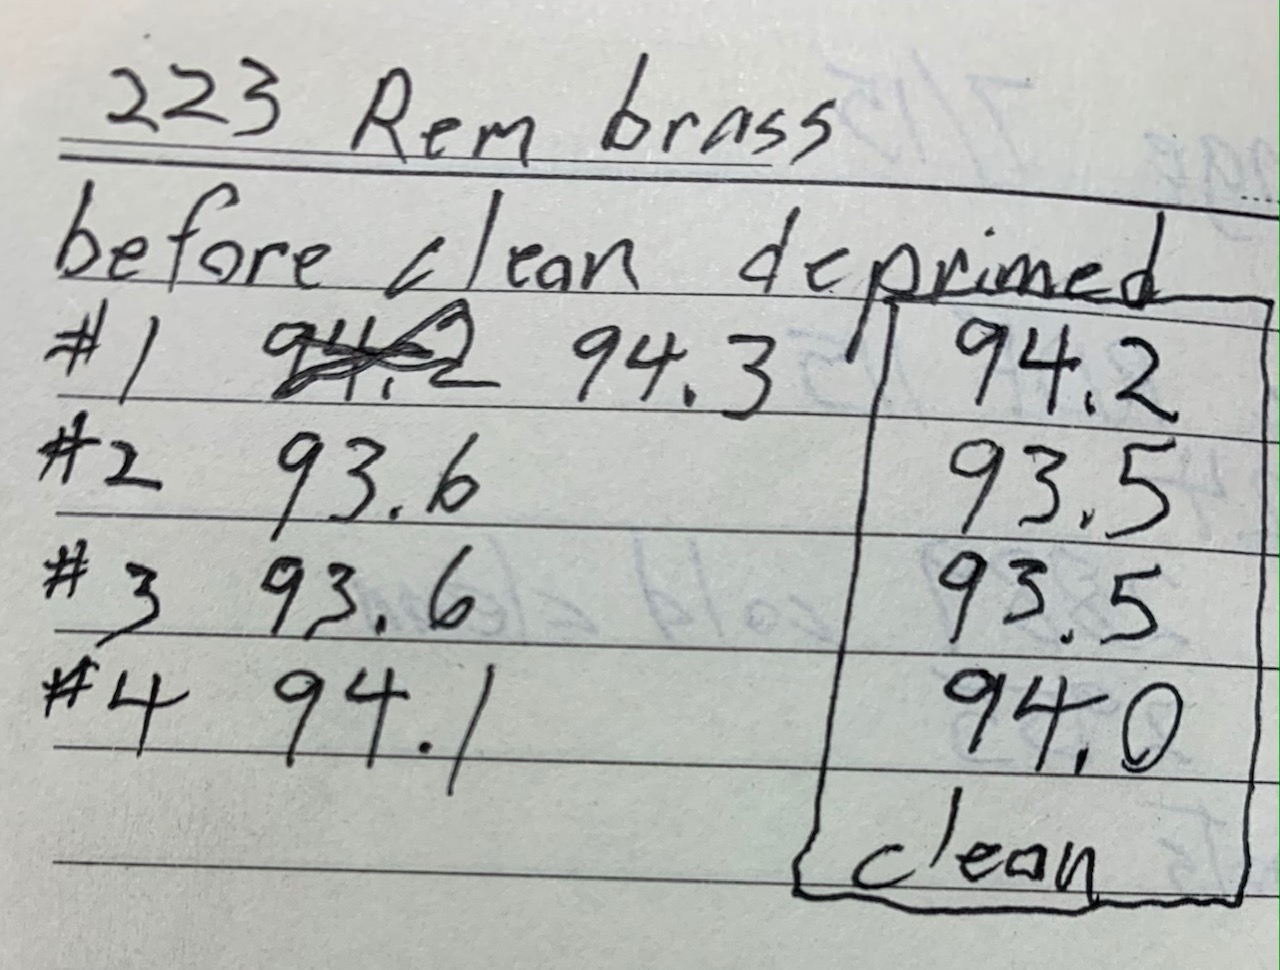 223 Rem brass
before clean deprimed
#1 94.2 94.3 94.2
#2 93.6 93.5
#3 93.6 93.5
#4 94.1 94.0
clean